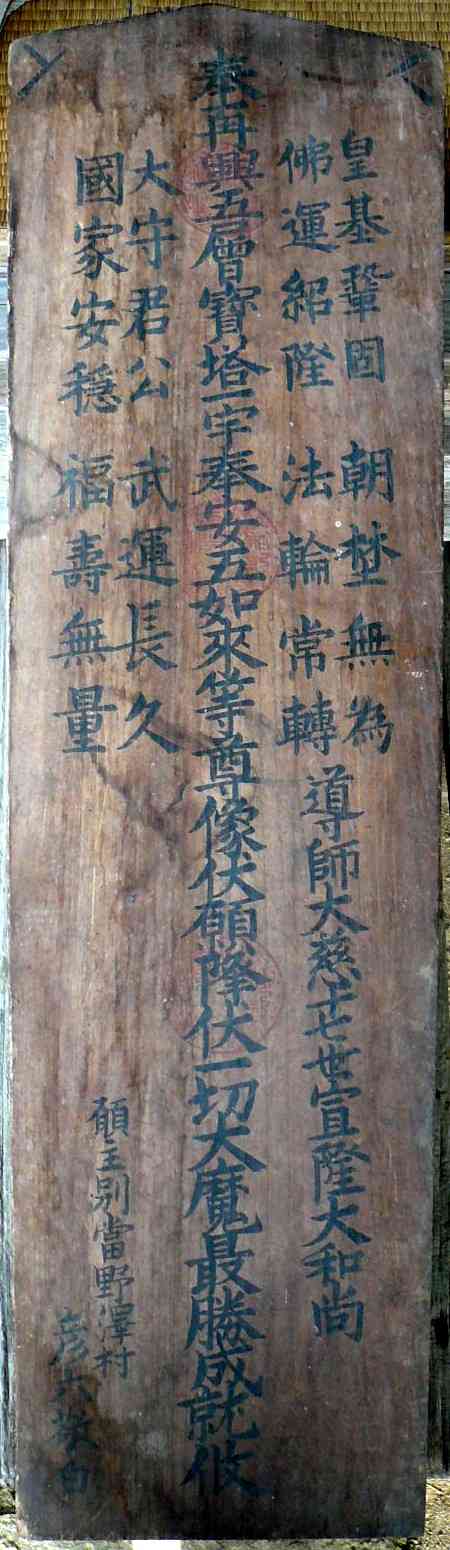 皇基鞏固 朝埜無為
佛運紹隆 法輪常轉
導師大慈十七世宣隆大和尚
奉再興五層寶塔一宇奉安五如來等尊像伏願降伏一切大魔最勝成就攸
大守君公 武運長久
國家安穩 福壽無量
願主別當野澤村
敬白